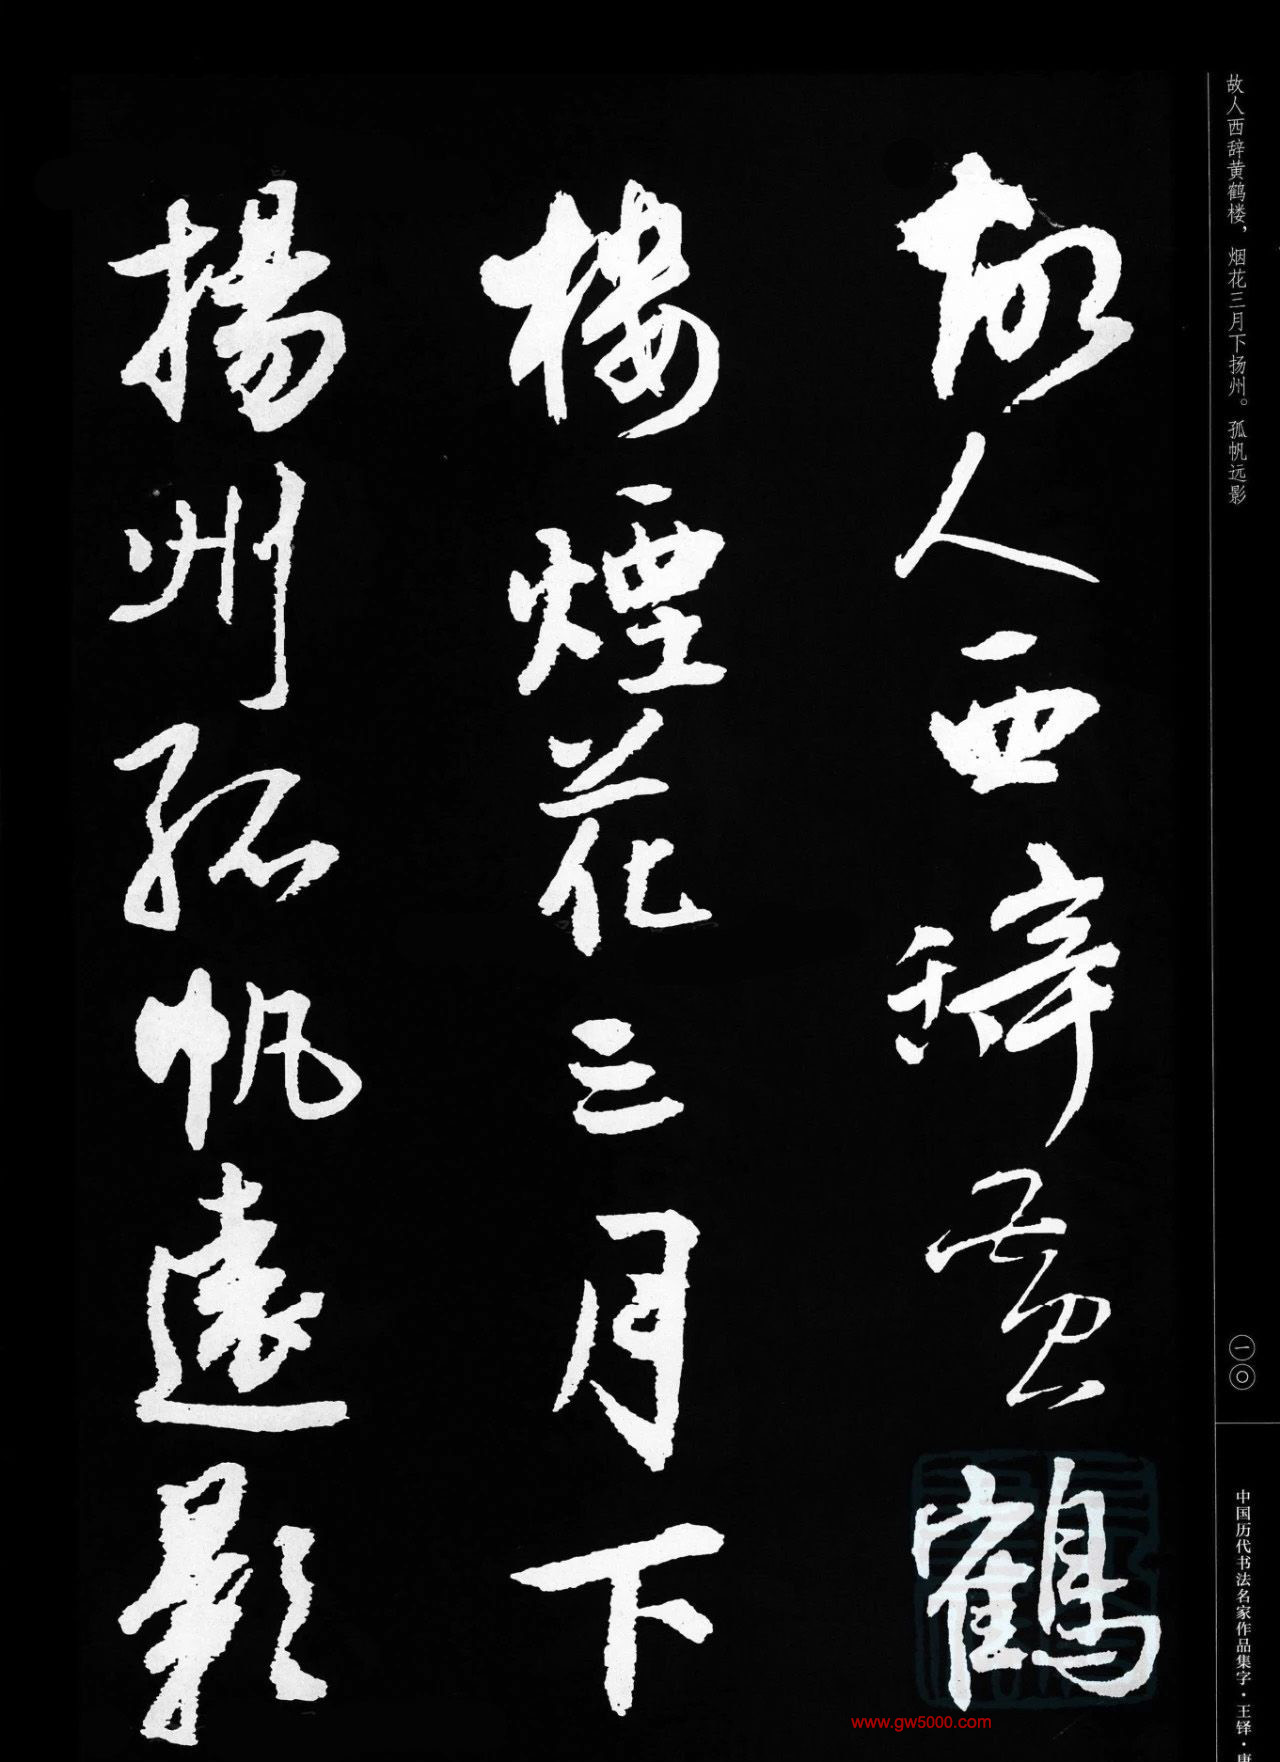 故人西辞黄鹤楼，烟花三月下扬州。孤帆远影
故人西辭黃鶴
樓煙花三月下
揚州孤帆遠影
一〇
中国历代书法名家作品集字·王铎·唐
www.gw5000.com